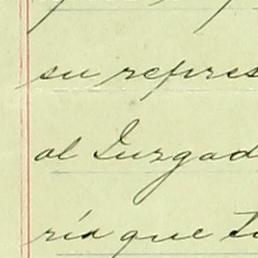 su repres
al Juzgad
ría que tu